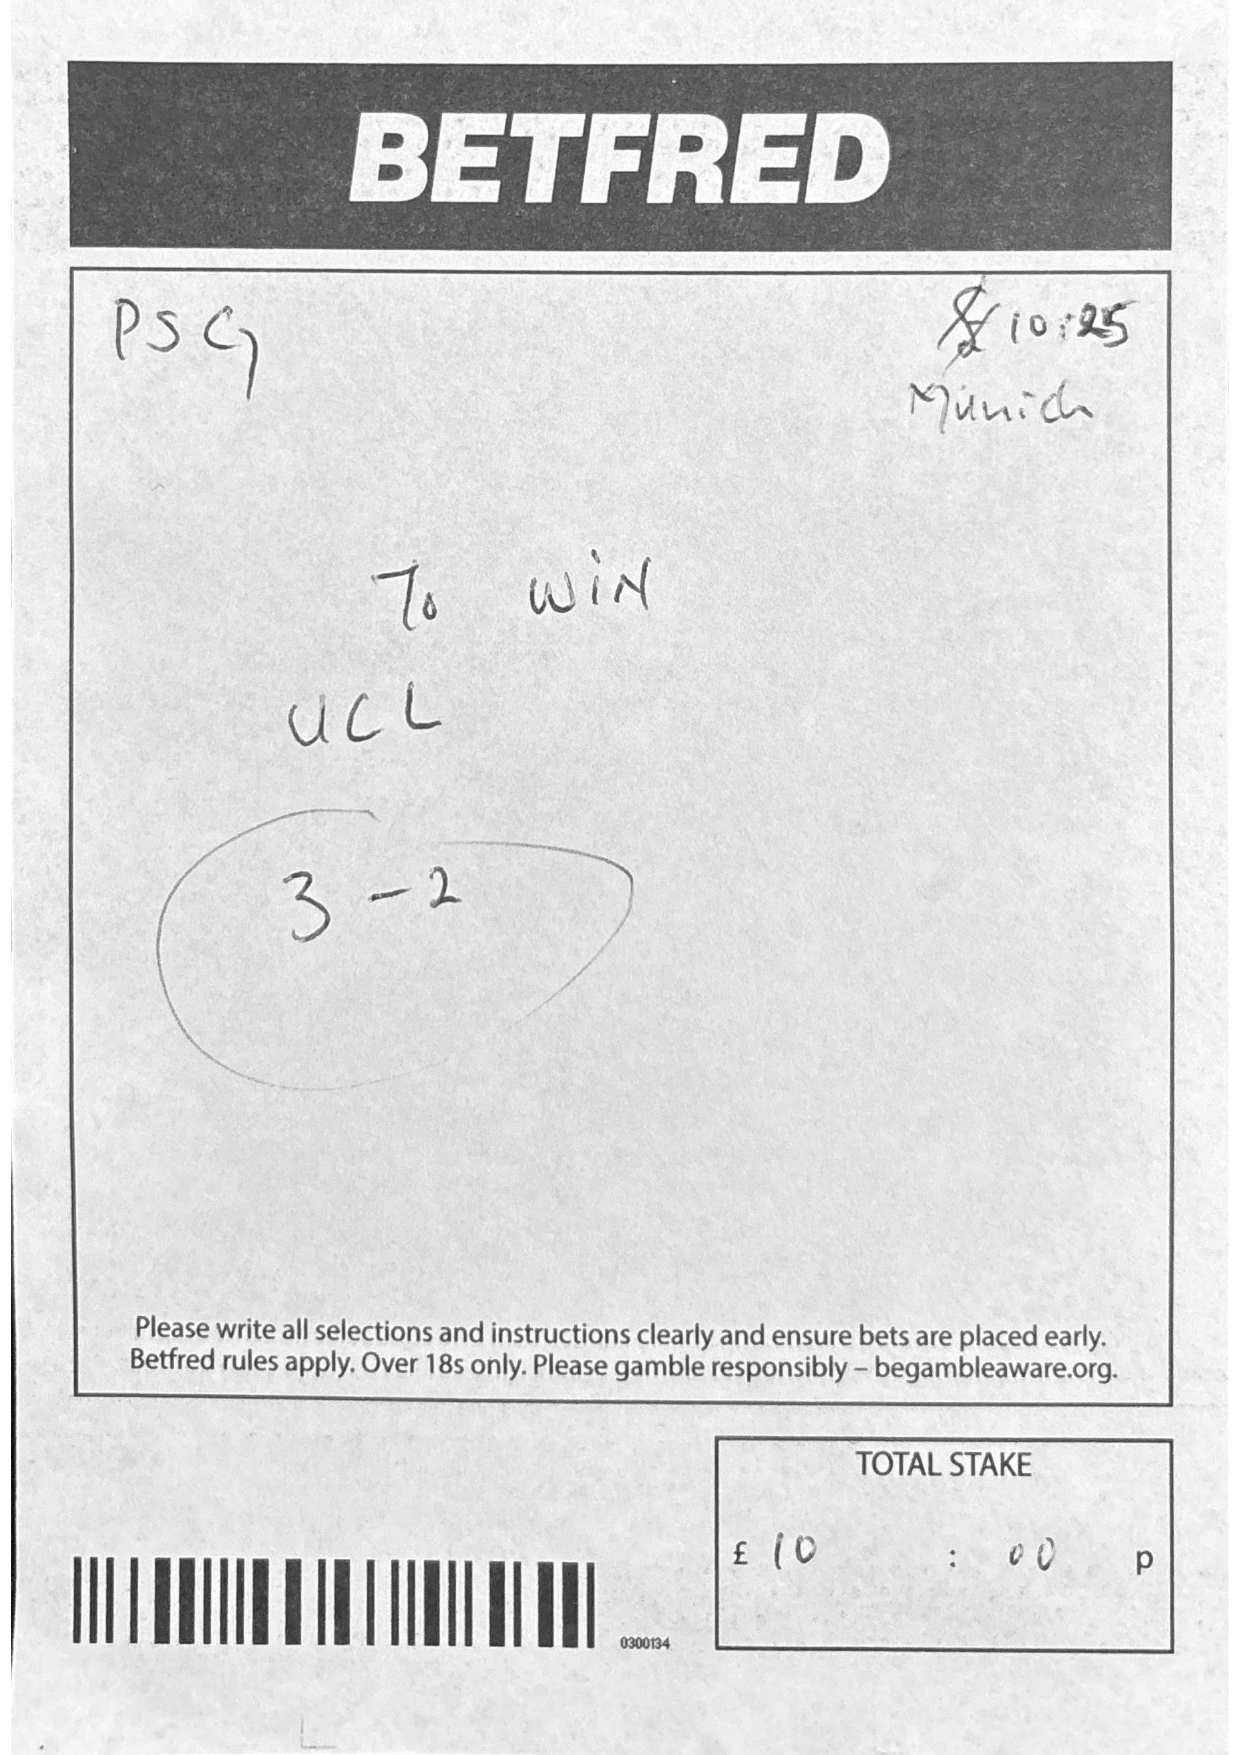 BETFRED
PSG
10:25
Munich
To WIN
UCL
3-2
Please write all selections and instructions clearly and ensure bets are placed early.
Betfred rules apply. Over 18s only. Please gamble responsibly – begambleaware.org.
TOTAL STAKE
£ 10 : 00 p
0300134